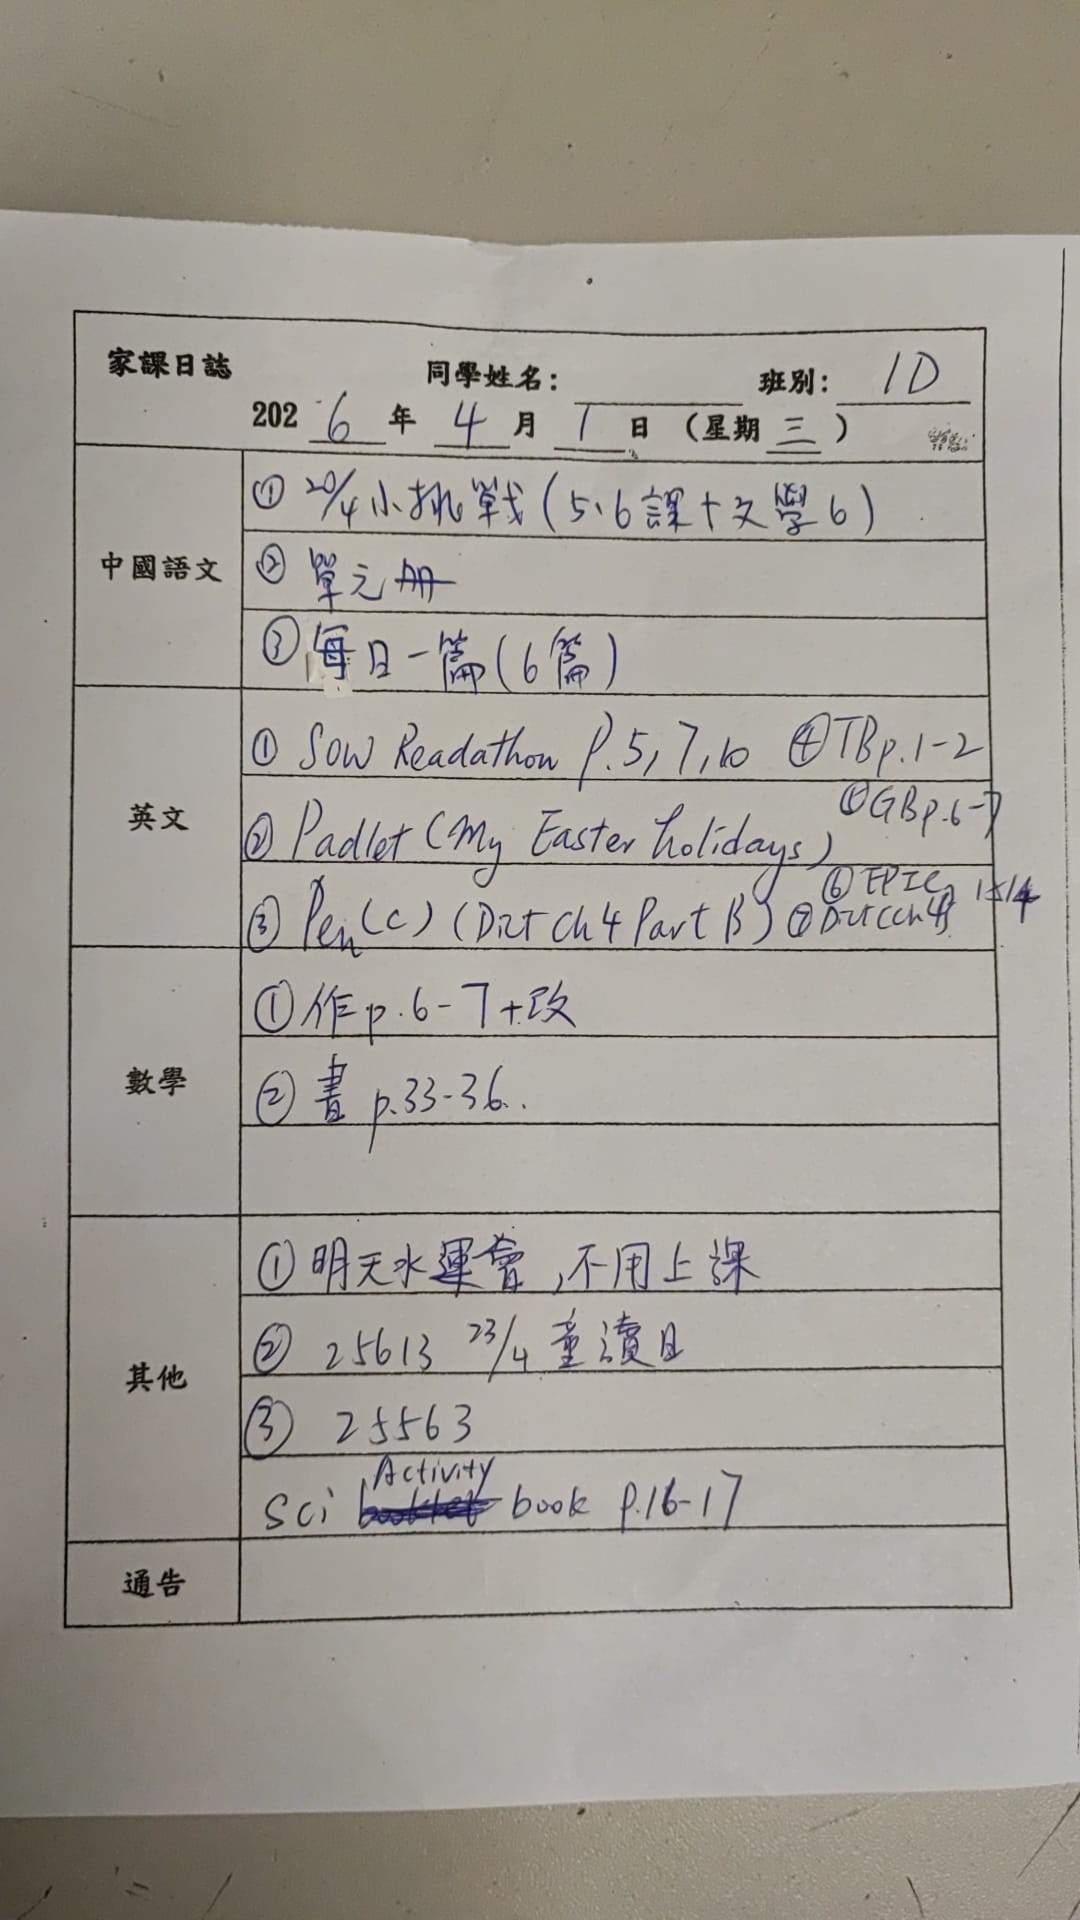 家課日誌 同學姓名： 班別： 1D
2026年4月1日（星期三）
中國語文
① 20/4 小挑戰（5、6課＋文學6）
② 單元册
③ 每日一篇（6篇）
英文
① SOW Readathon P.5,7,10 ④TB p.1-2
② Padlet (My Easter holidays) ⑤GB p.6-7
③ Pen (C) (Dict Ch 4 Part B) ⑥ EPIC
⑦ Dict (Ch 4) 15/4
數學
① 作 p.6-7 +改
② 書 p.33-36.
其他
① 明天水運會，不用上課
② 25613 23/4 童讀日
③ 25563
Sci Activity book p.16-17
通告